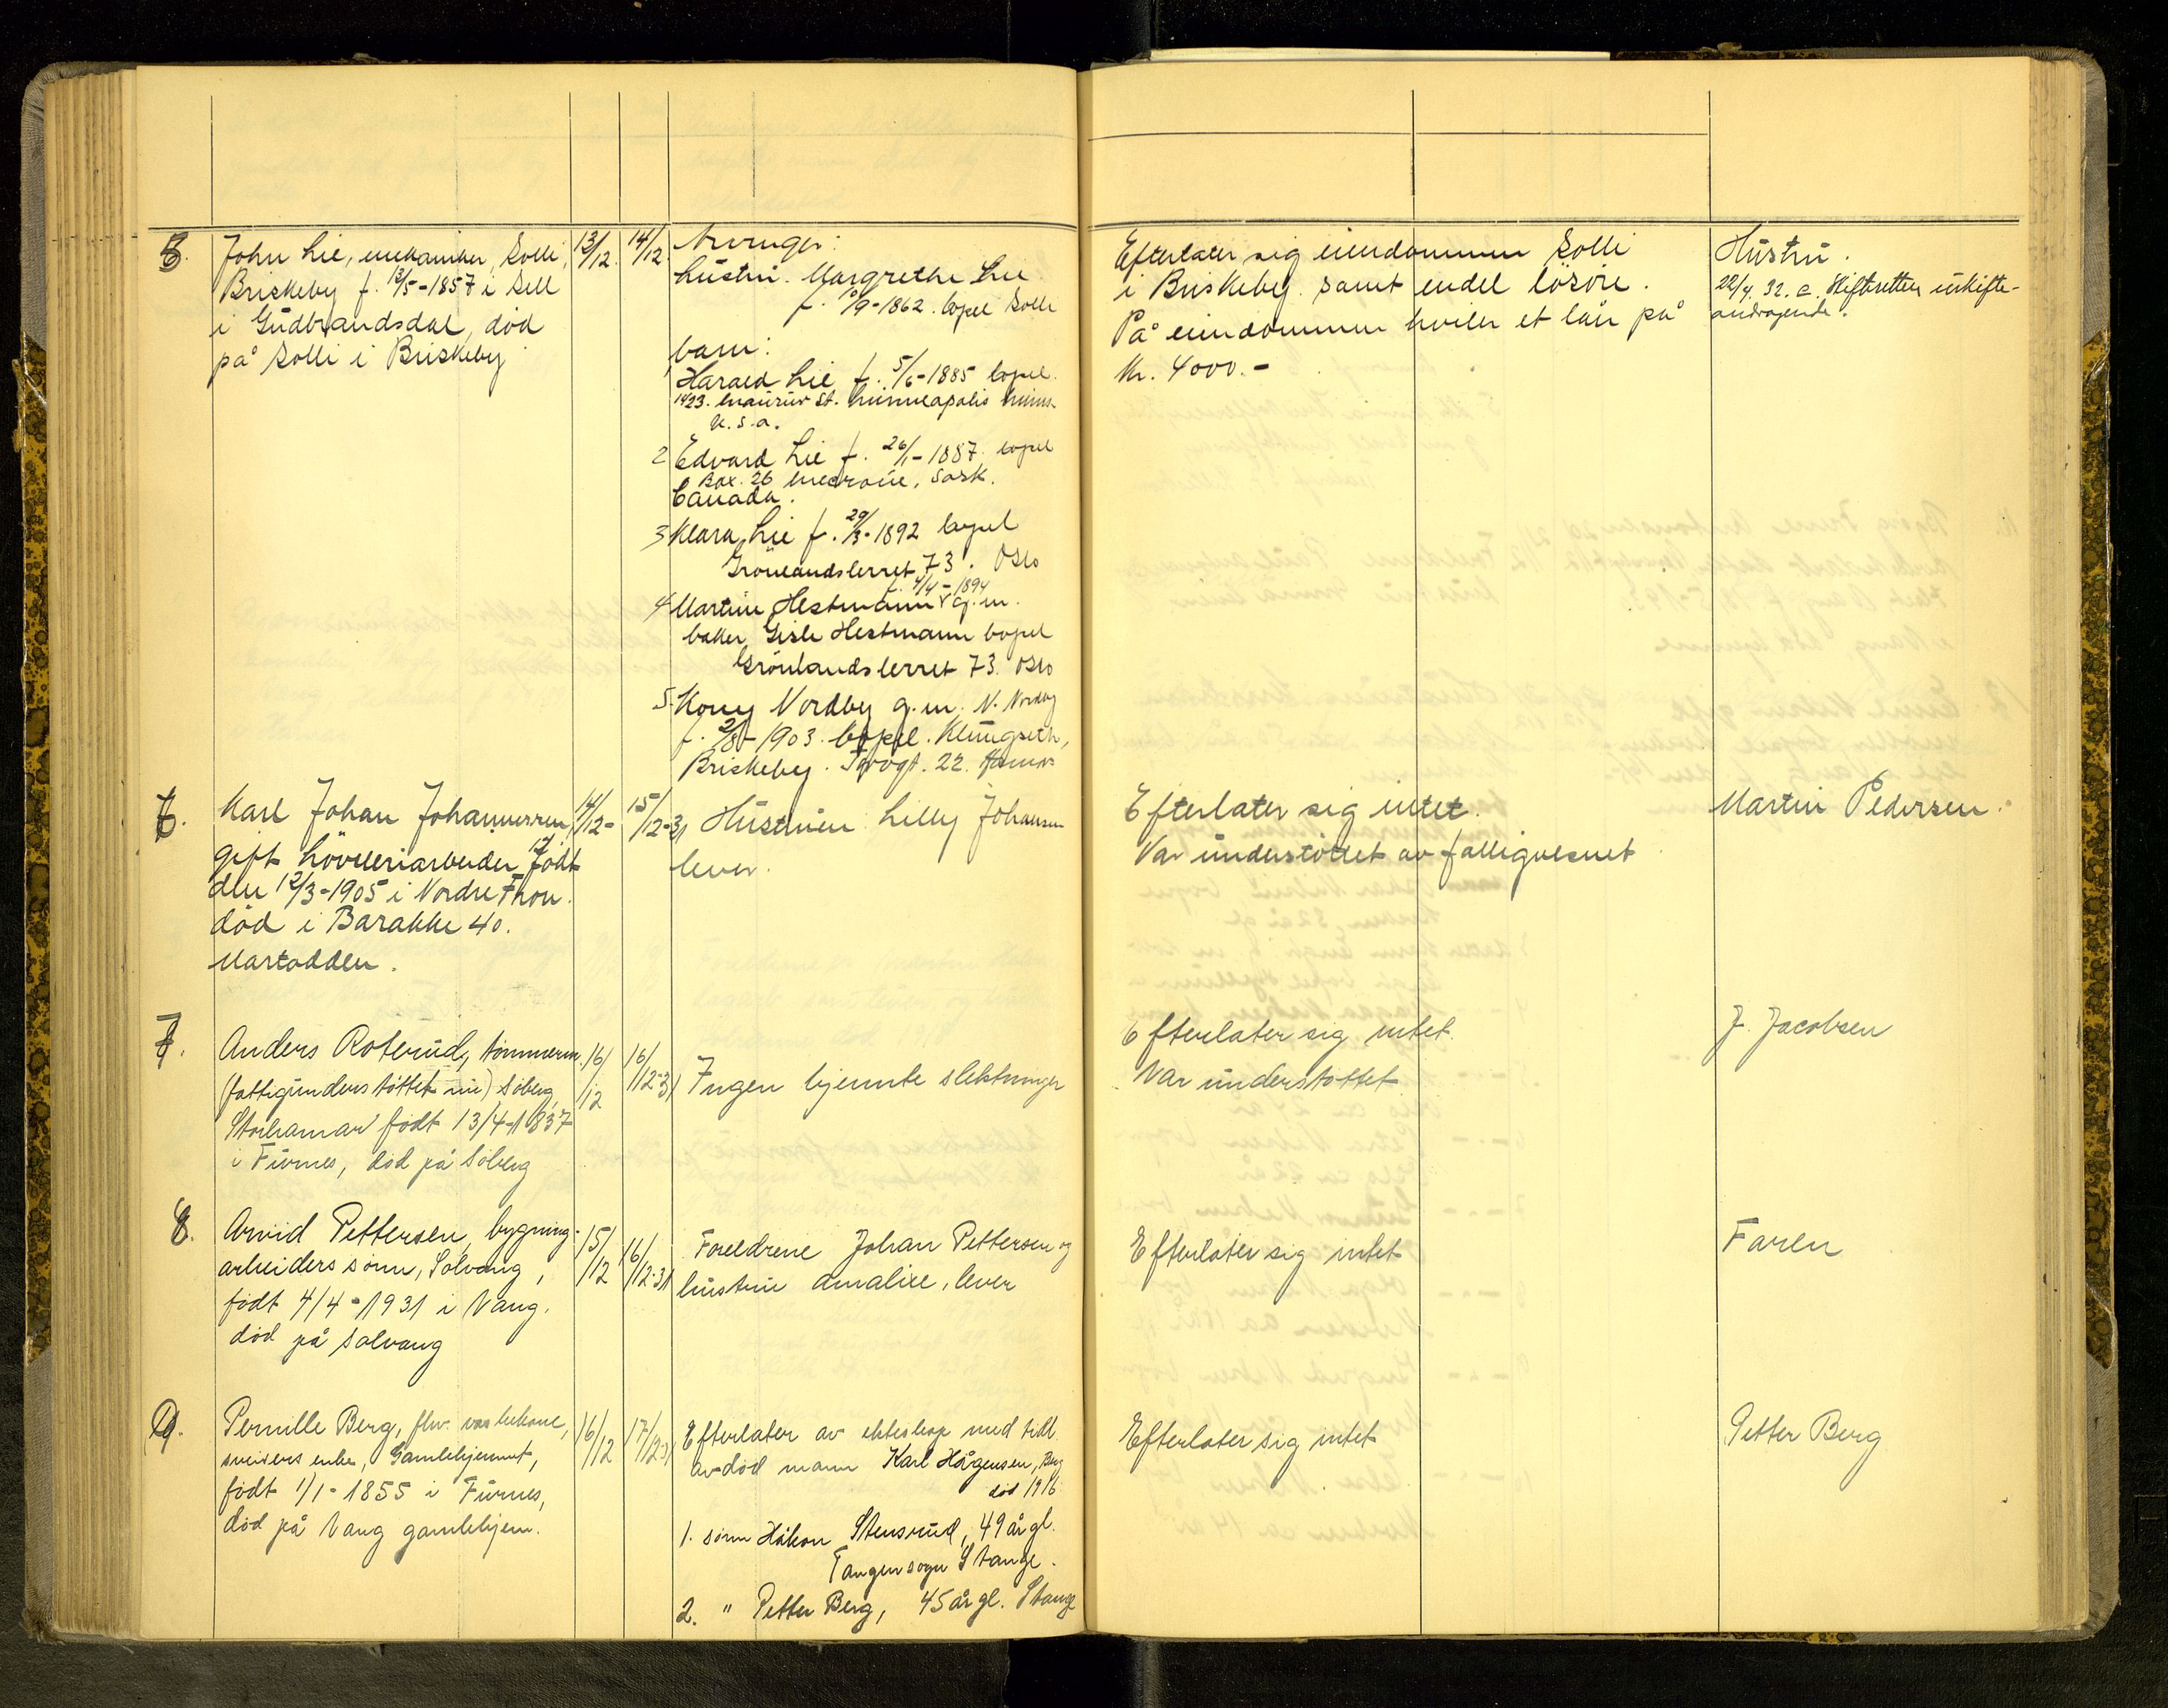 5. John Lie, mekaniker, Solli, 13/12. 14/12. Arvinger:
Briskeby f. 13/5-1857 i Sell
i Gudbrandsdal, død
på Solli i Briskeby
hustru. Margrethe Lie
f. 9/9-1862. bopel Solli
barn:
Harald Lie f. 5/6-1885 bopel.
1423. St. Minneapolis Minn.
U.S.a.
2 Edvard Lie f. 26/1-1887. bopel
Box. 26 Sask.
Canada.
3 Klara Lie f. 29/3-1892 bopel
Grönlandslerret 73. Oslo
f. 4/4-1894
4 Martin Hestmann g.m.
baker Gisle Hestmann bopel
Grönlandslerret 73. Oslo
5. Nordby g.m. N. Nordby
f. 2/8-1903. bopel. Klungseth,
Briskeby. 22. Hamar
Efterlater sig eiendommen Solli
i Briskeby. samt endel lösöre.
På eiendommen hviler et lån på
Kr. 4000.-
Hustru.
22/4.32. Skifteretten uskifte-
andragende.
6. Karl Johan Johannessen, 14/12- 15/12-31 Hustruen Lilly Johansen
gift hövleriarbeider født lever.
den 12/3-1905 i Nordre Fron.
död i Barakke 40.
Martodden.
Efterlater sig intet.
Var understöttet av fattigvesnet
Martin Pedersen.
7. Anders Roterud, tömmerm. 16/12 16/12-31 Ingen kjennte slektninger
(fattigunderstöttet nu) Söberg,
Storhamar födt 13/4-1837
i Furnes, död på Söberg
Efterlater sig intet.
Var understöttet
J. Jacobsen
8. Arvid Pettersen, bygning- 15/12 16/12-31 Foreldrene Johan Pettersen og
arbeiders sönn, Solvang, hustru Amalie, lever
födt 4/4-1931 i Vang.
död på Solvang
Efterlater sig intet
Faren
9. Pernille Berg, fhv. vaskekone, 16/12 17/12-31 Efterlater av ekteskap med tidl.
sveisers enke, Gamlehjemmet, avdöd mann Karl Hågensen, Berg
födt 1/1-1855 i Furnes, död 1916
död på Vang gamlehjem.
1. sönn Håkon Stensrud, 49 år gl.
Tangen sogn Stange.
2. " Petter Berg, 45 år gl. Stange
Efterlater sig intet
Petter Berg